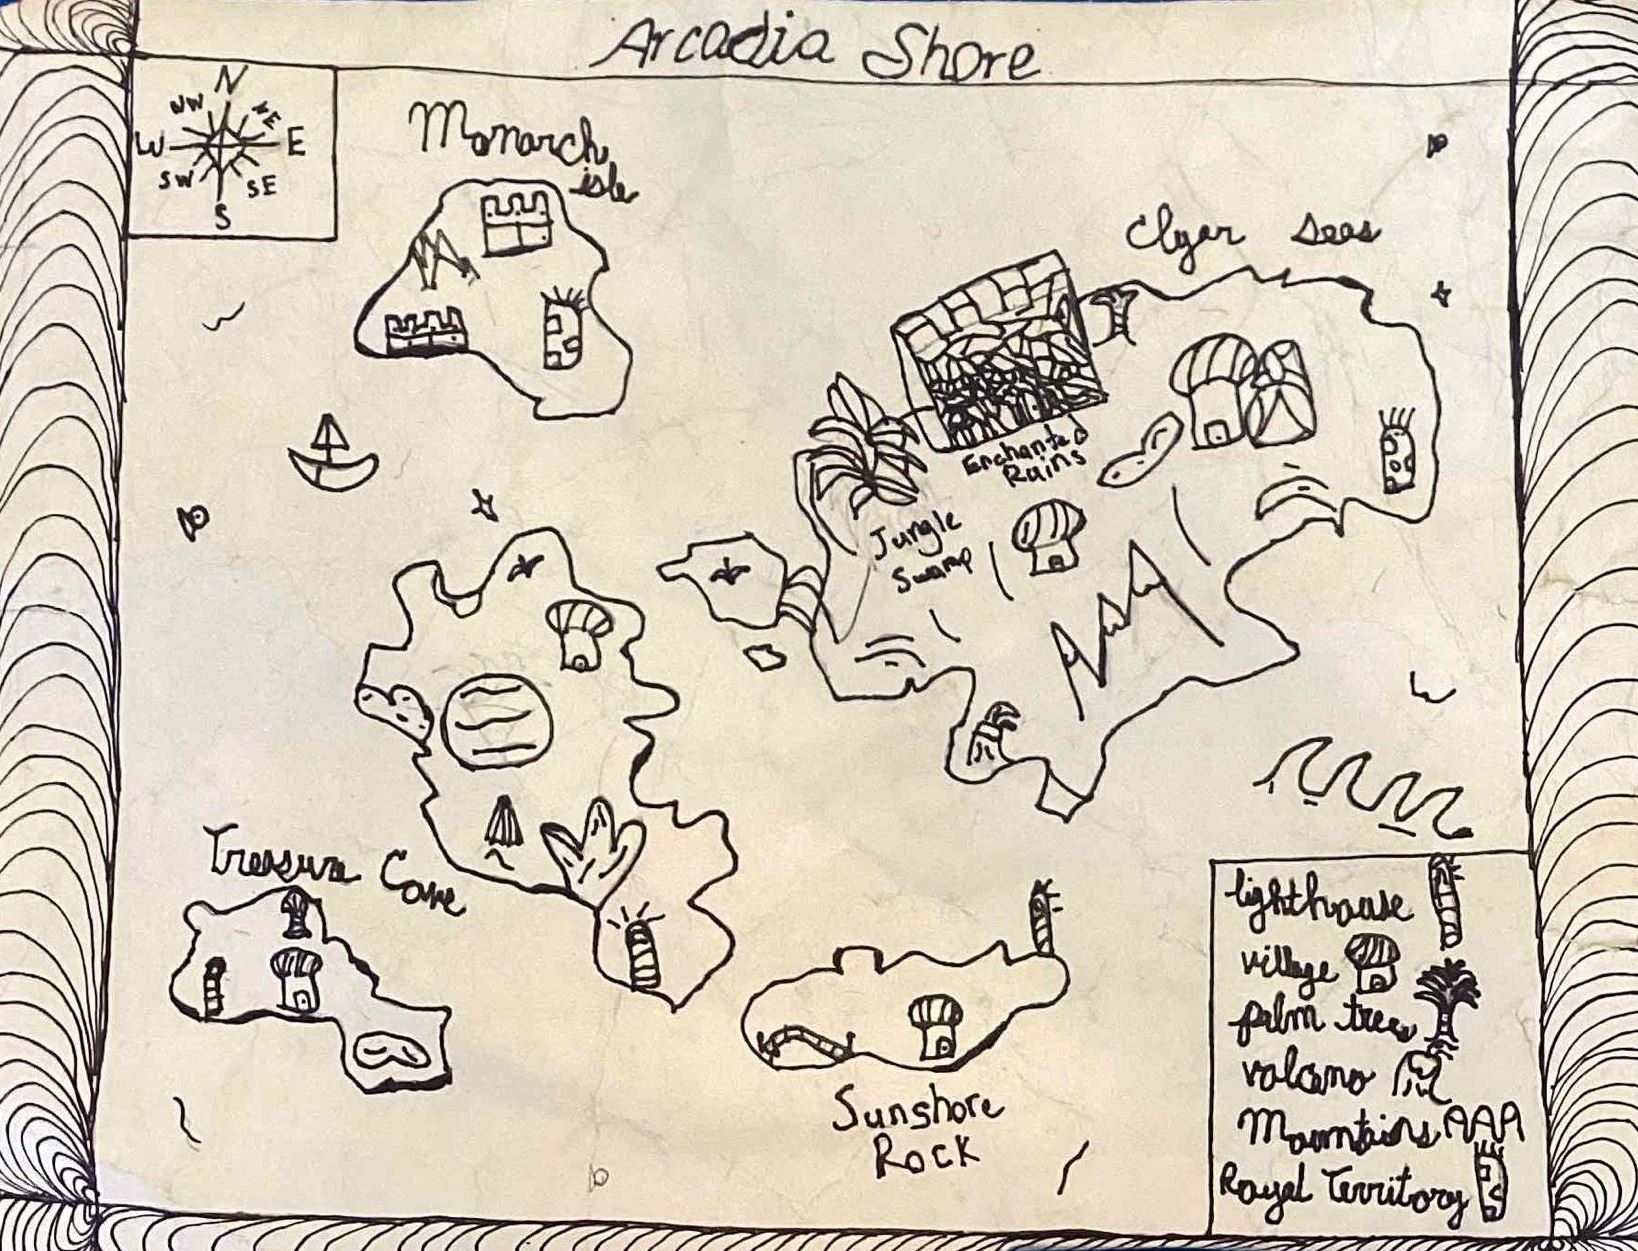 Arcadia Shore
N
NW
NE
W
E
SW
SE
S
Monarch
isle
Clyar Seas
Enchanted
Ruins
Jungle
Swamp
Treasure Cove
Sunshore
Rock
lighthouse
village
palm trees
volcano
Mountains
Royal Territory